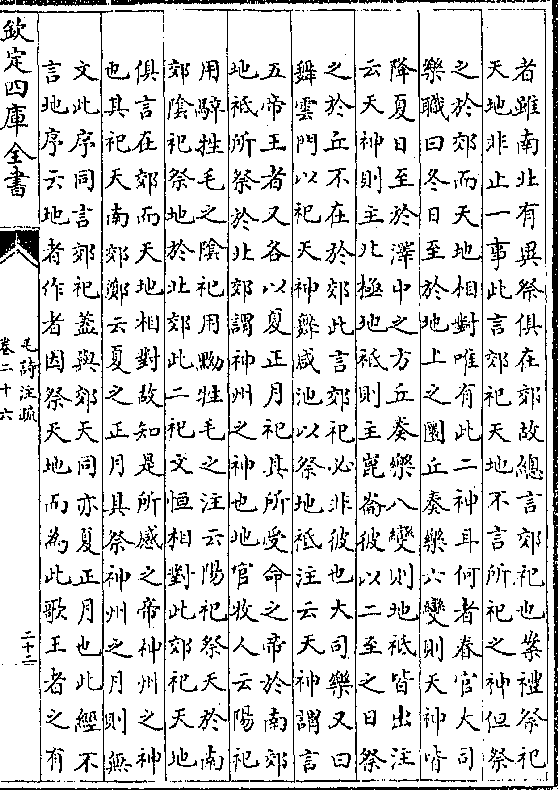 者雖南北有異祭俱在郊故總言郊祀也案禮祭祀
天地非止一事此言郊祀天地不言所祀之神但祭
之於郊而天地相對唯有此二神耳何者春官大司
樂職曰冬日至於地上之圜丘奏樂六變則天神皆
降夏日至於澤中之方丘奏樂八變則地祗皆出注
云天神則主北極地祗則主崑崙彼以二至之日祭
之於丘不在於郊此言郊祀必非彼也大司樂又曰
舞雲門以祀天神舞咸池以祭地祗注云天神謂言
五帝王者又各以夏正月祀其所受命之帝於南郊
地祗所祭於北郊謂神州之神也地官牧人云陽祀
用騂牲毛之陰祀用黝牲毛之注云陽祀祭天於南
郊陰祀祭地於北郊此二祀文恒相對此郊祀天地
俱言在郊而天地相對故知是所感之帝神州之神
也其祀天南郊鄭云夏之正月其祭神州之月則無
文此序同言郊祀葢與郊天同亦夏正月也此經不
言地序云地者作者因祭天地而為此歌王者之有
欽定四庫全書
毛詩注疏
卷二十六
二十二